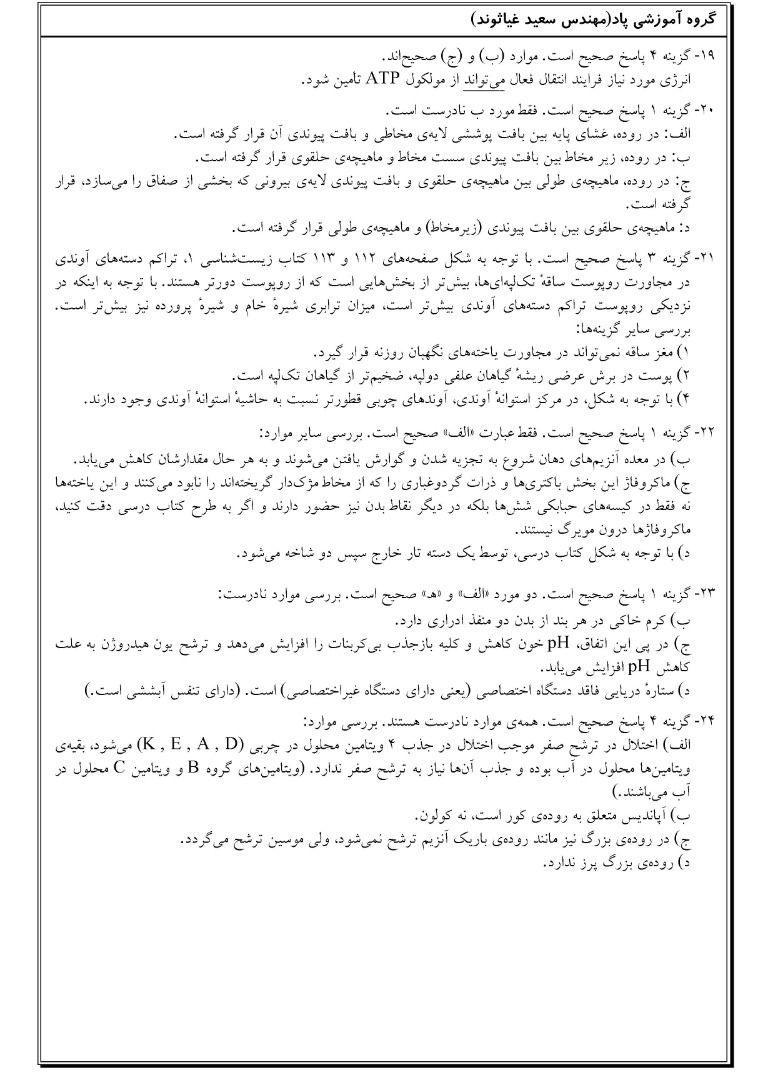 گروه آموزشی پاد(مهندس سعید غیاثوند)
۱۹- گزینه ۴ پاسخ صحیح است. موارد (ب) و (ج) صحیح‌اند.
انرژی مورد نیاز فرایند انتقال فعال می‌تواند از مولکول ATP تأمین شود.
۲۰- گزینه ۱ پاسخ صحیح است. فقط مورد ب نادرست است.
الف: در روده، غشای پایه بین بافت پوششی لایه‌ی مخاطی و بافت پیوندی آن قرار گرفته است.
ب: در روده، زیر مخاط بین بافت پیوندی سست مخاط و ماهیچه‌ی حلقوی قرار گرفته است.
ج: در روده، ماهیچه‌ی طولی بین ماهیچه‌ی حلقوی و بافت پیوندی لایه‌ی بیرونی که بخشی از صفاق را می‌سازد، قرار
گرفته است.
د: ماهیچه‌ی حلقوی بین بافت پیوندی (زیرمخاط) و ماهیچه‌ی طولی قرار گرفته است.
۲۱- گزینه ۳ پاسخ صحیح است. با توجه به شکل صفحه‌های ۱۱۲ و ۱۱۳ کتاب زیست‌شناسی ۱، تراکم دسته‌های آوندی
در مجاورت روپوست ساقهٔ تک‌لپه‌ای‌ها، بیش‌تر از بخش‌هایی است که از روپوست دورتر هستند. با توجه به اینکه در
نزدیکی روپوست تراکم دسته‌های آوندی بیش‌تر است، میزان ترابری شیرهٔ خام و شیرهٔ پرورده نیز بیش‌تر است.
بررسی سایر گزینه‌ها:
۱) مغز ساقه نمی‌تواند در مجاورت یاخته‌های نگهبان روزنه قرار گیرد.
۲) پوست در برش عرضی ریشهٔ گیاهان علفی دولپه، ضخیم‌تر از گیاهان تک‌لپه است.
۴) با توجه به شکل، در مرکز استوانهٔ آوندی، آوندهای چوبی قطورتر نسبت به حاشیهٔ استوانهٔ آوندی وجود دارند.
۲۲- گزینه ۱ پاسخ صحیح است. فقط عبارت «الف» صحیح است. بررسی سایر موارد:
ب) در معده آنزیم‌های دهان شروع به تجزیه شدن و گوارش یافتن می‌شوند و به هر حال مقدارشان کاهش می‌یابد.
ج) ماکروفاژ این بخش باکتری‌ها و ذرات گردوغباری را که از مخاط مژک‌دار گریخته‌اند را نابود می‌کنند و این یاخته‌ها
نه فقط در کیسه‌های حبابکی شش‌ها بلکه در دیگر نقاط بدن نیز حضور دارند و اگر به طرح کتاب درسی دقت کنید،
ماکروفاژها درون مویرگ نیستند.
د) با توجه به شکل کتاب درسی، توسط یک دسته تار خارج سپس دو شاخه می‌شود.
۲۳- گزینه ۱ پاسخ صحیح است. دو مورد «الف» و «هـ» صحیح است. بررسی موارد نادرست:
ب) کرم خاکی در هر بند از بدن دو منفذ ادراری دارد.
ج) در پی این اتفاق، pH خون کاهش و کلیه بازجذب بی‌کربنات را افزایش می‌دهد و ترشح یون هیدروژن به علت
کاهش pH افزایش می‌یابد.
د) ستارهٔ دریایی فاقد دستگاه اختصاصی (یعنی دارای دستگاه غیراختصاصی) است. (دارای تنفس آبششی است.)
۲۴- گزینه ۴ پاسخ صحیح است. همه‌ی موارد نادرست هستند. بررسی موارد:
الف) اختلال در ترشح صفر موجب اختلال در جذب ۴ ویتامین محلول در چربی (K , E , A , D) می‌شود، بقیه‌ی
ویتامین‌ها محلول در آب بوده و جذب آن‌ها نیاز به ترشح صفر ندارد. (ویتامین‌های گروه B و ویتامین C محلول در
آب می‌باشند.)
ب) آپاندیس متعلق به روده‌ی کور است، نه کولون.
ج) در روده‌ی بزرگ نیز مانند روده‌ی باریک آنزیم ترشح نمی‌شود، ولی موسین ترشح می‌گردد.
د) روده‌ی بزرگ پرز ندارد.